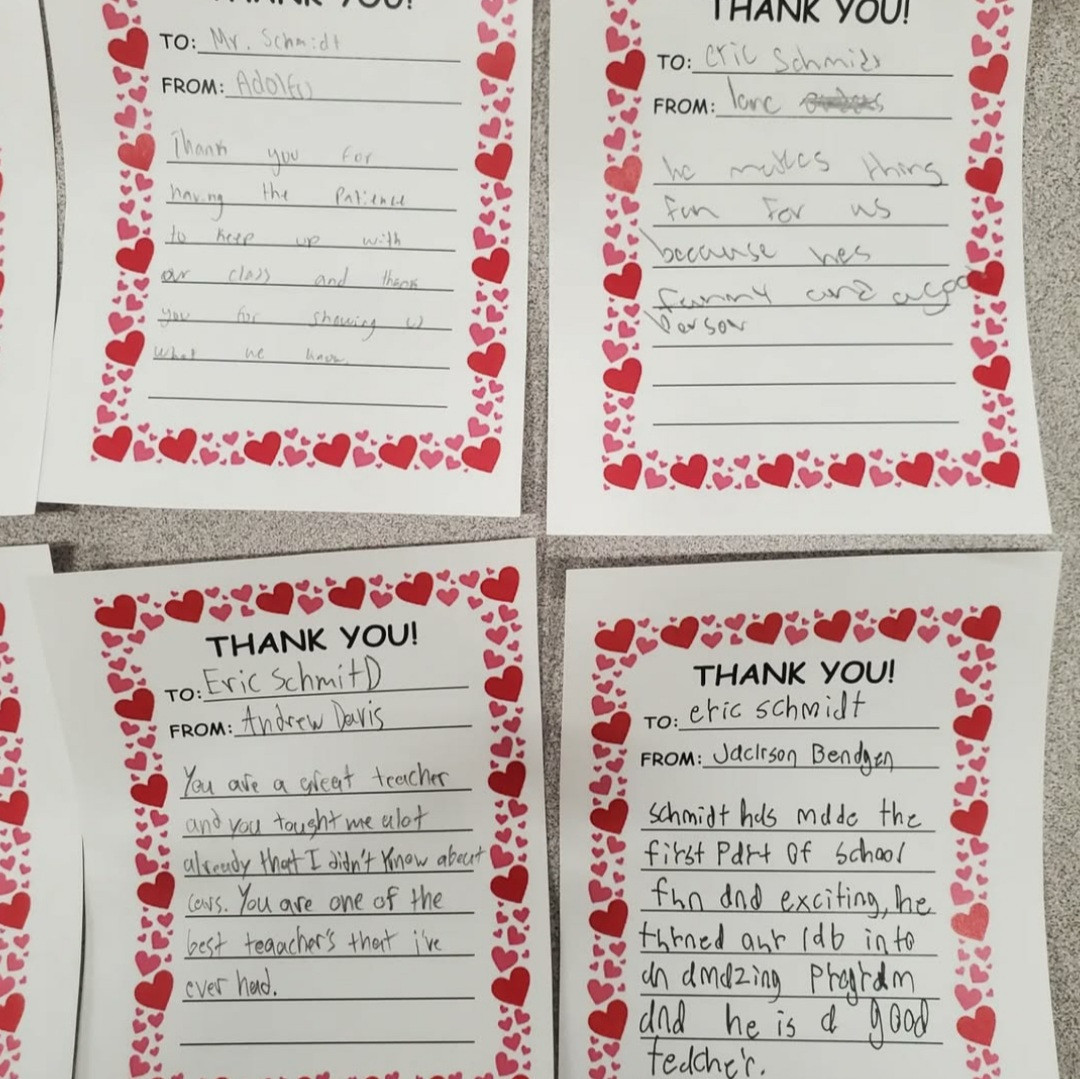 THANK YOU!
TO: Mr. Schmidt
FROM: Adolfo
Thank you for
having the Patience
to keep up with
our class and thank
you for showing us
what we know.
THANK YOU!
TO: eric Schmidt
FROM: lane
he makes thing
fun for us
because hes
funny and a good
Person
THANK YOU!
TO: Eric SchmitD
FROM: Andrew Davis
You are a great teacher
and you tought me alot
already that I didn't know about
cars. You are one of the
best teaacher's that i've
ever had.
THANK YOU!
TO: eric schmidt
FROM: Jackson Bendgen
schmidt has made the
first Part of school
fun and exciting, he
turned our lab into
an amazing program
and he is a good
teacher.